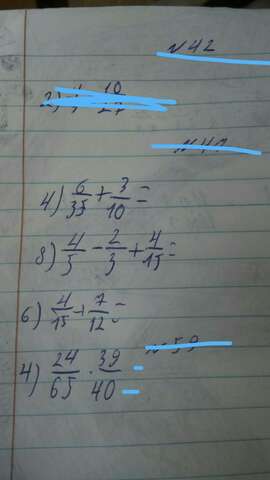 №42
4) 6/35 + 3/10 =
8) 4/5 - 2/3 + 4/15 =
6) 4/15 + 7/12 =
№59
4) 24/65 · 39/40 =